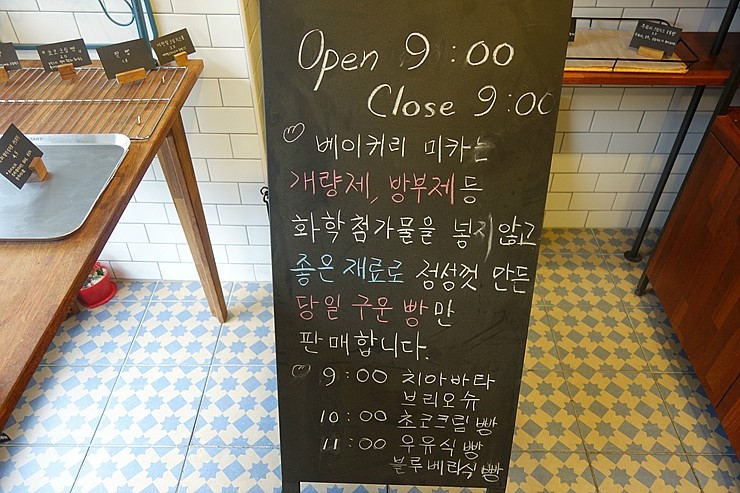 Open 9:00
Close 9:00
♡ 베이커리 미카는
개량제, 방부제 등
화학첨가물을 넣지않고
좋은 재료로 정성껏 만든
당일 구운 빵만
판매합니다.
♡ 9:00 치아바타
브리오슈
10:00 초코크림빵
11:00 우유식빵
블루베리식빵